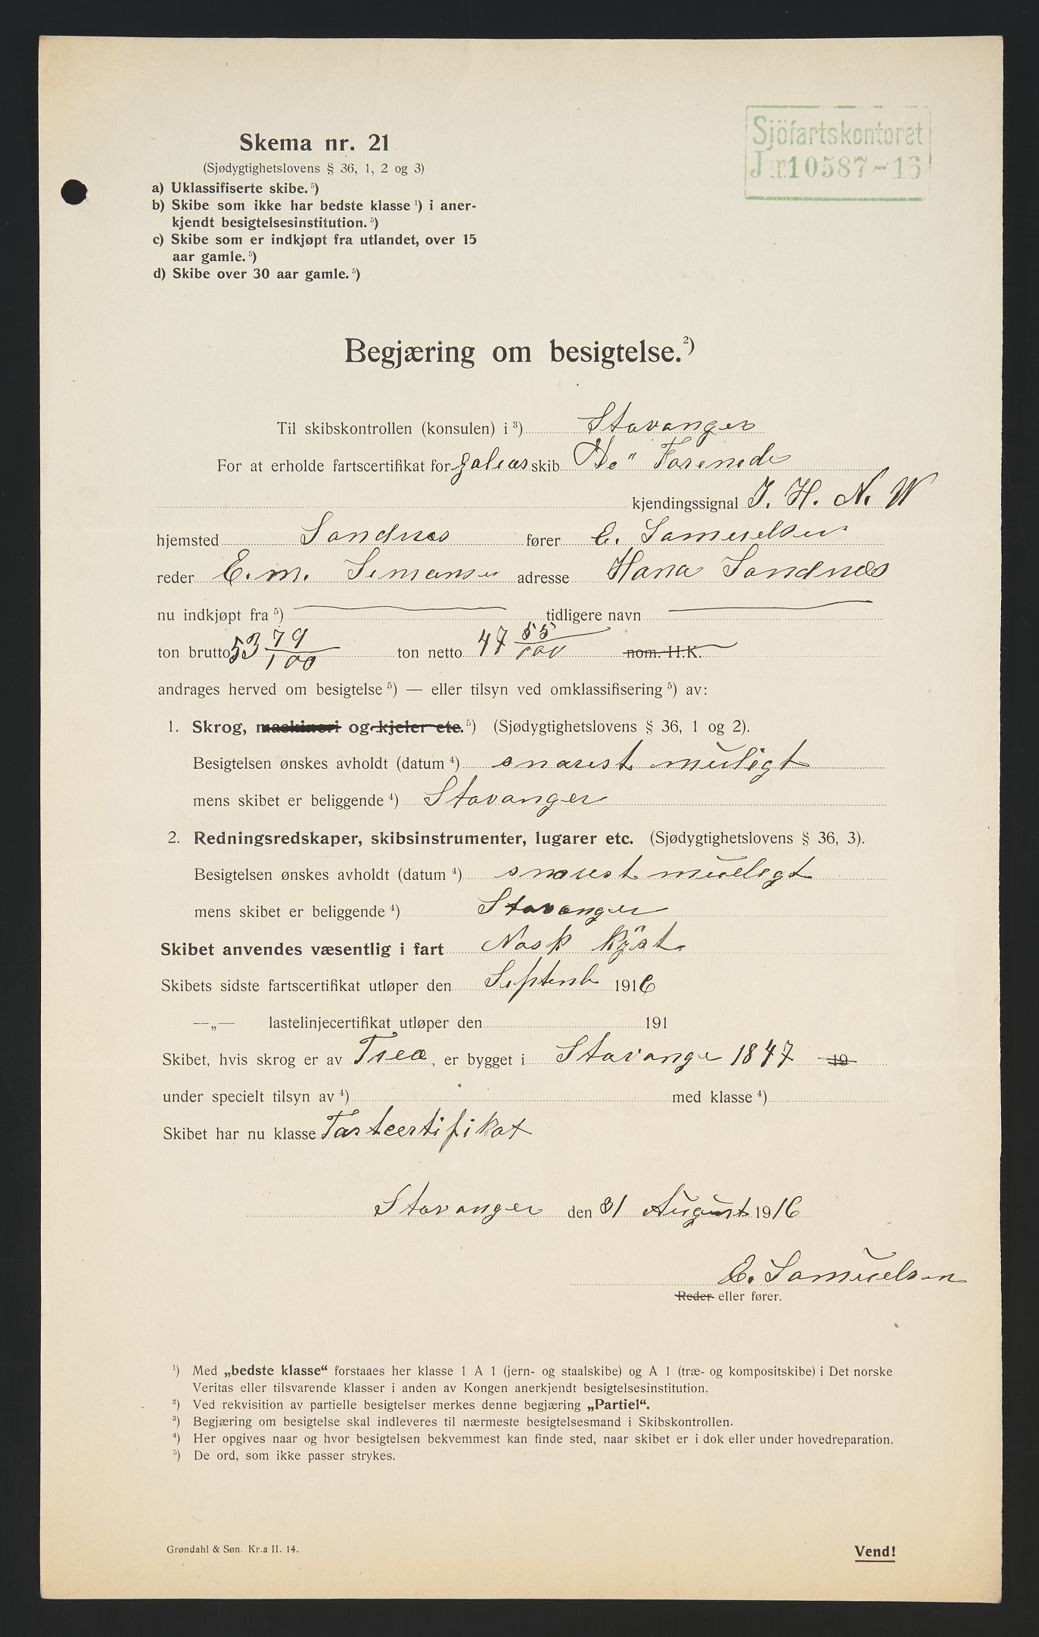 Sjöfartskontoret
J.nr.10587-16
Skema nr. 21
(Sjødygtighetslovens § 36, 1, 2 og 3)
a) Uklassifiserte skibe.⁵)
b) Skibe som ikke har bedste klasse¹) i aner-
kjendt besigtelsesinstitution.⁵)
c) Skibe som er indkjøpt fra utlandet, over 15
aar gamle.⁵)
d) Skibe over 30 aar gamle.⁵)
Begjæring om besigtelse.²)
Til skibskontrollen (konsulen) i ³) Stavanger
For at erholde fartscertifikat for galeas skib "De" Forenede
kjendingssignal J. H. N. W
hjemsted Sandnes fører E. Samuelsen
reder E. M. Simonsen adresse Hana Sandnes
nu indkjøpt fra ⁵) tidligere navn
ton brutto 53 79/100 ton netto 47 55/100 nom. H.K.
andrages herved om besigtelse ⁵) — eller tilsyn ved omklassifisering ⁵) av:
1. Skrog, maskineri og kjeler etc.⁵) (Sjødygtighetslovens § 36, 1 og 2).
Besigtelsen ønskes avholdt (datum ⁴) snarest muligt
mens skibet er beliggende ⁴) Stavanger
2. Redningsredskaper, skibsinstrumenter, lugarer etc. (Sjødygtighetslovens § 36, 3).
Besigtelsen ønskes avholdt (datum ⁴) snarest mueligt
mens skibet er beliggende ⁴) Stavanger
Skibet anvendes væsentlig i fart Nosk Kyst
Skibets sidste fartscertifikat utløper den Septenb 1916
—„— lastelinjecertifikat utløper den 191
Skibet, hvis skrog er av Træ, er bygget i Stavange 1847 19
under specielt tilsyn av ⁴) med klasse ⁴)
Skibet har nu klasse Fartcertifikat
Stavanger den 31 August 1916
E. Samuelsen
Reder eller fører.
¹) Med „bedste klasse“ forstaaes her klasse 1 A 1 (jern- og staalskibe) og A 1 (træ- og kompositskibe) i Det norske
Veritas eller tilsvarende klasser i anden av Kongen anerkjendt besigtelsesinstitution.
²) Ved rekvisition av partielle besigtelser merkes denne begjæring „Partiel“.
³) Begjæring om besigtelse skal indleveres til nærmeste besigtelsesmand i Skibskontrollen.
⁴) Her opgives naar og hvor besigtelsen bekvemmest kan finde sted, naar skibet er i dok eller under hovedreparation.
⁵) De ord, som ikke passer strykes.
Grøndahl & Søn. Kr.a II. 14.
Vend!